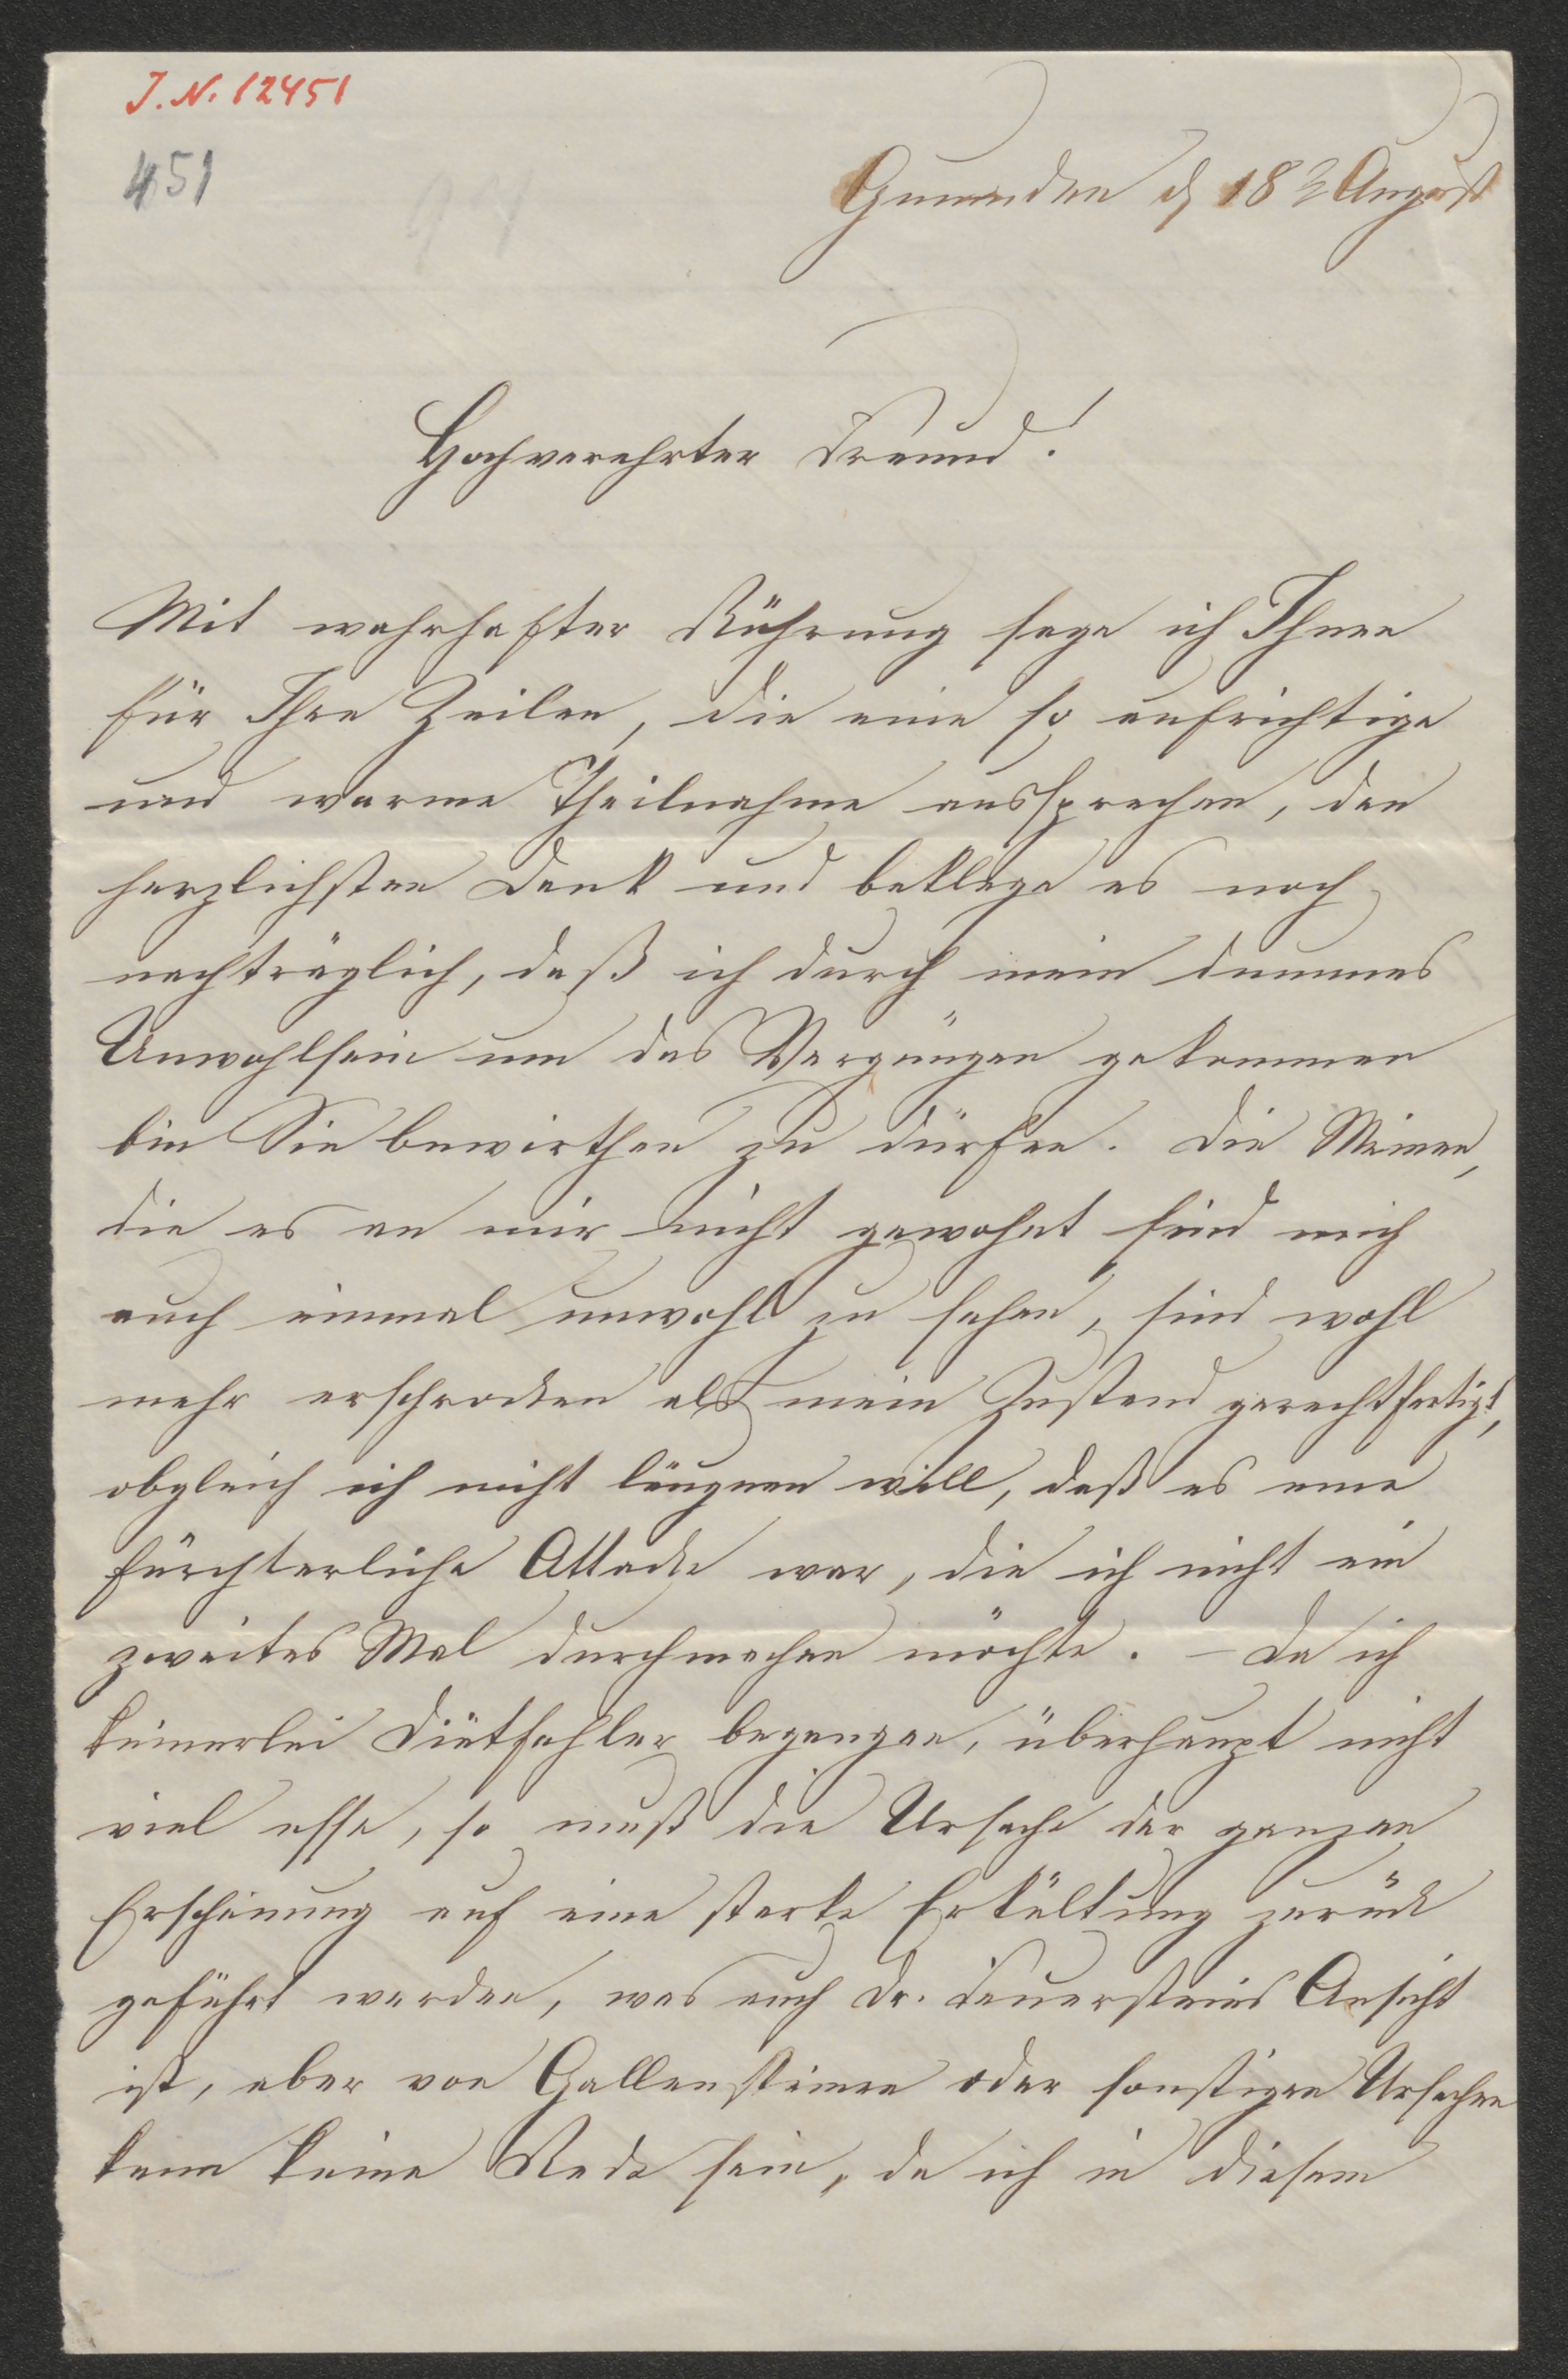 J. N. 12451
451
Gmunden d 18t August
Hochverehrter Freund!
Mit wahrhafter Rührung sage ich Ihnen
für Ihre Zeilen, die eine so aufrichtige
und warme Theilnahme aussprechen, den
herzlichsten Dank und beklage es noch
nachträglich, daß ich durch mein dummes
Unwohlsein um das Vergnügen gekommen
bin Sie bewirthen zu dürfen. Die Meinen,
die es an mir nicht gewohnt sind mich
auch einmal unwohl zu sehen, sind wohl
mehr erschrocken als mein Zustand gerechtfertigt,
obgleich ich nicht läugnen will, daß es eine
fürchterliche Attacke war, die ich nicht ein
zweites Mal durchmachen möchte. – Da ich
keinerlei Diätfehler begangen, überhaupt nicht
viel esse, so muß die Ursache der ganzen
Erscheinung auf eine starke Erkältung zurück
geführt werden, was auch Dr. Feuersteins Ansicht
ist, aber von Gallensteinen oder sonstigen Ursachen
kann keine Rede sein, da ich in diesem